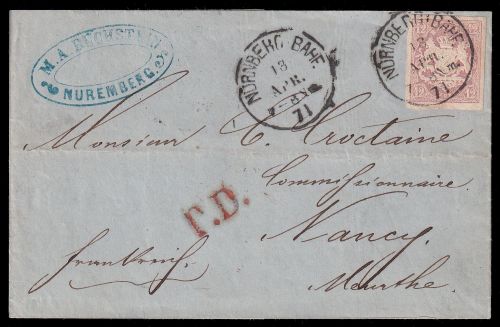 M. A. BECHSTEIN
NUREMBERG.
NÜRNBERG BAHF
13
APR.
71
NÜRNBERG BAHF
13
APR.
71
Monsieur C. Croctaine
Commissionnaire.
Nancy.
Meurthe.
Frankreich
P.D.